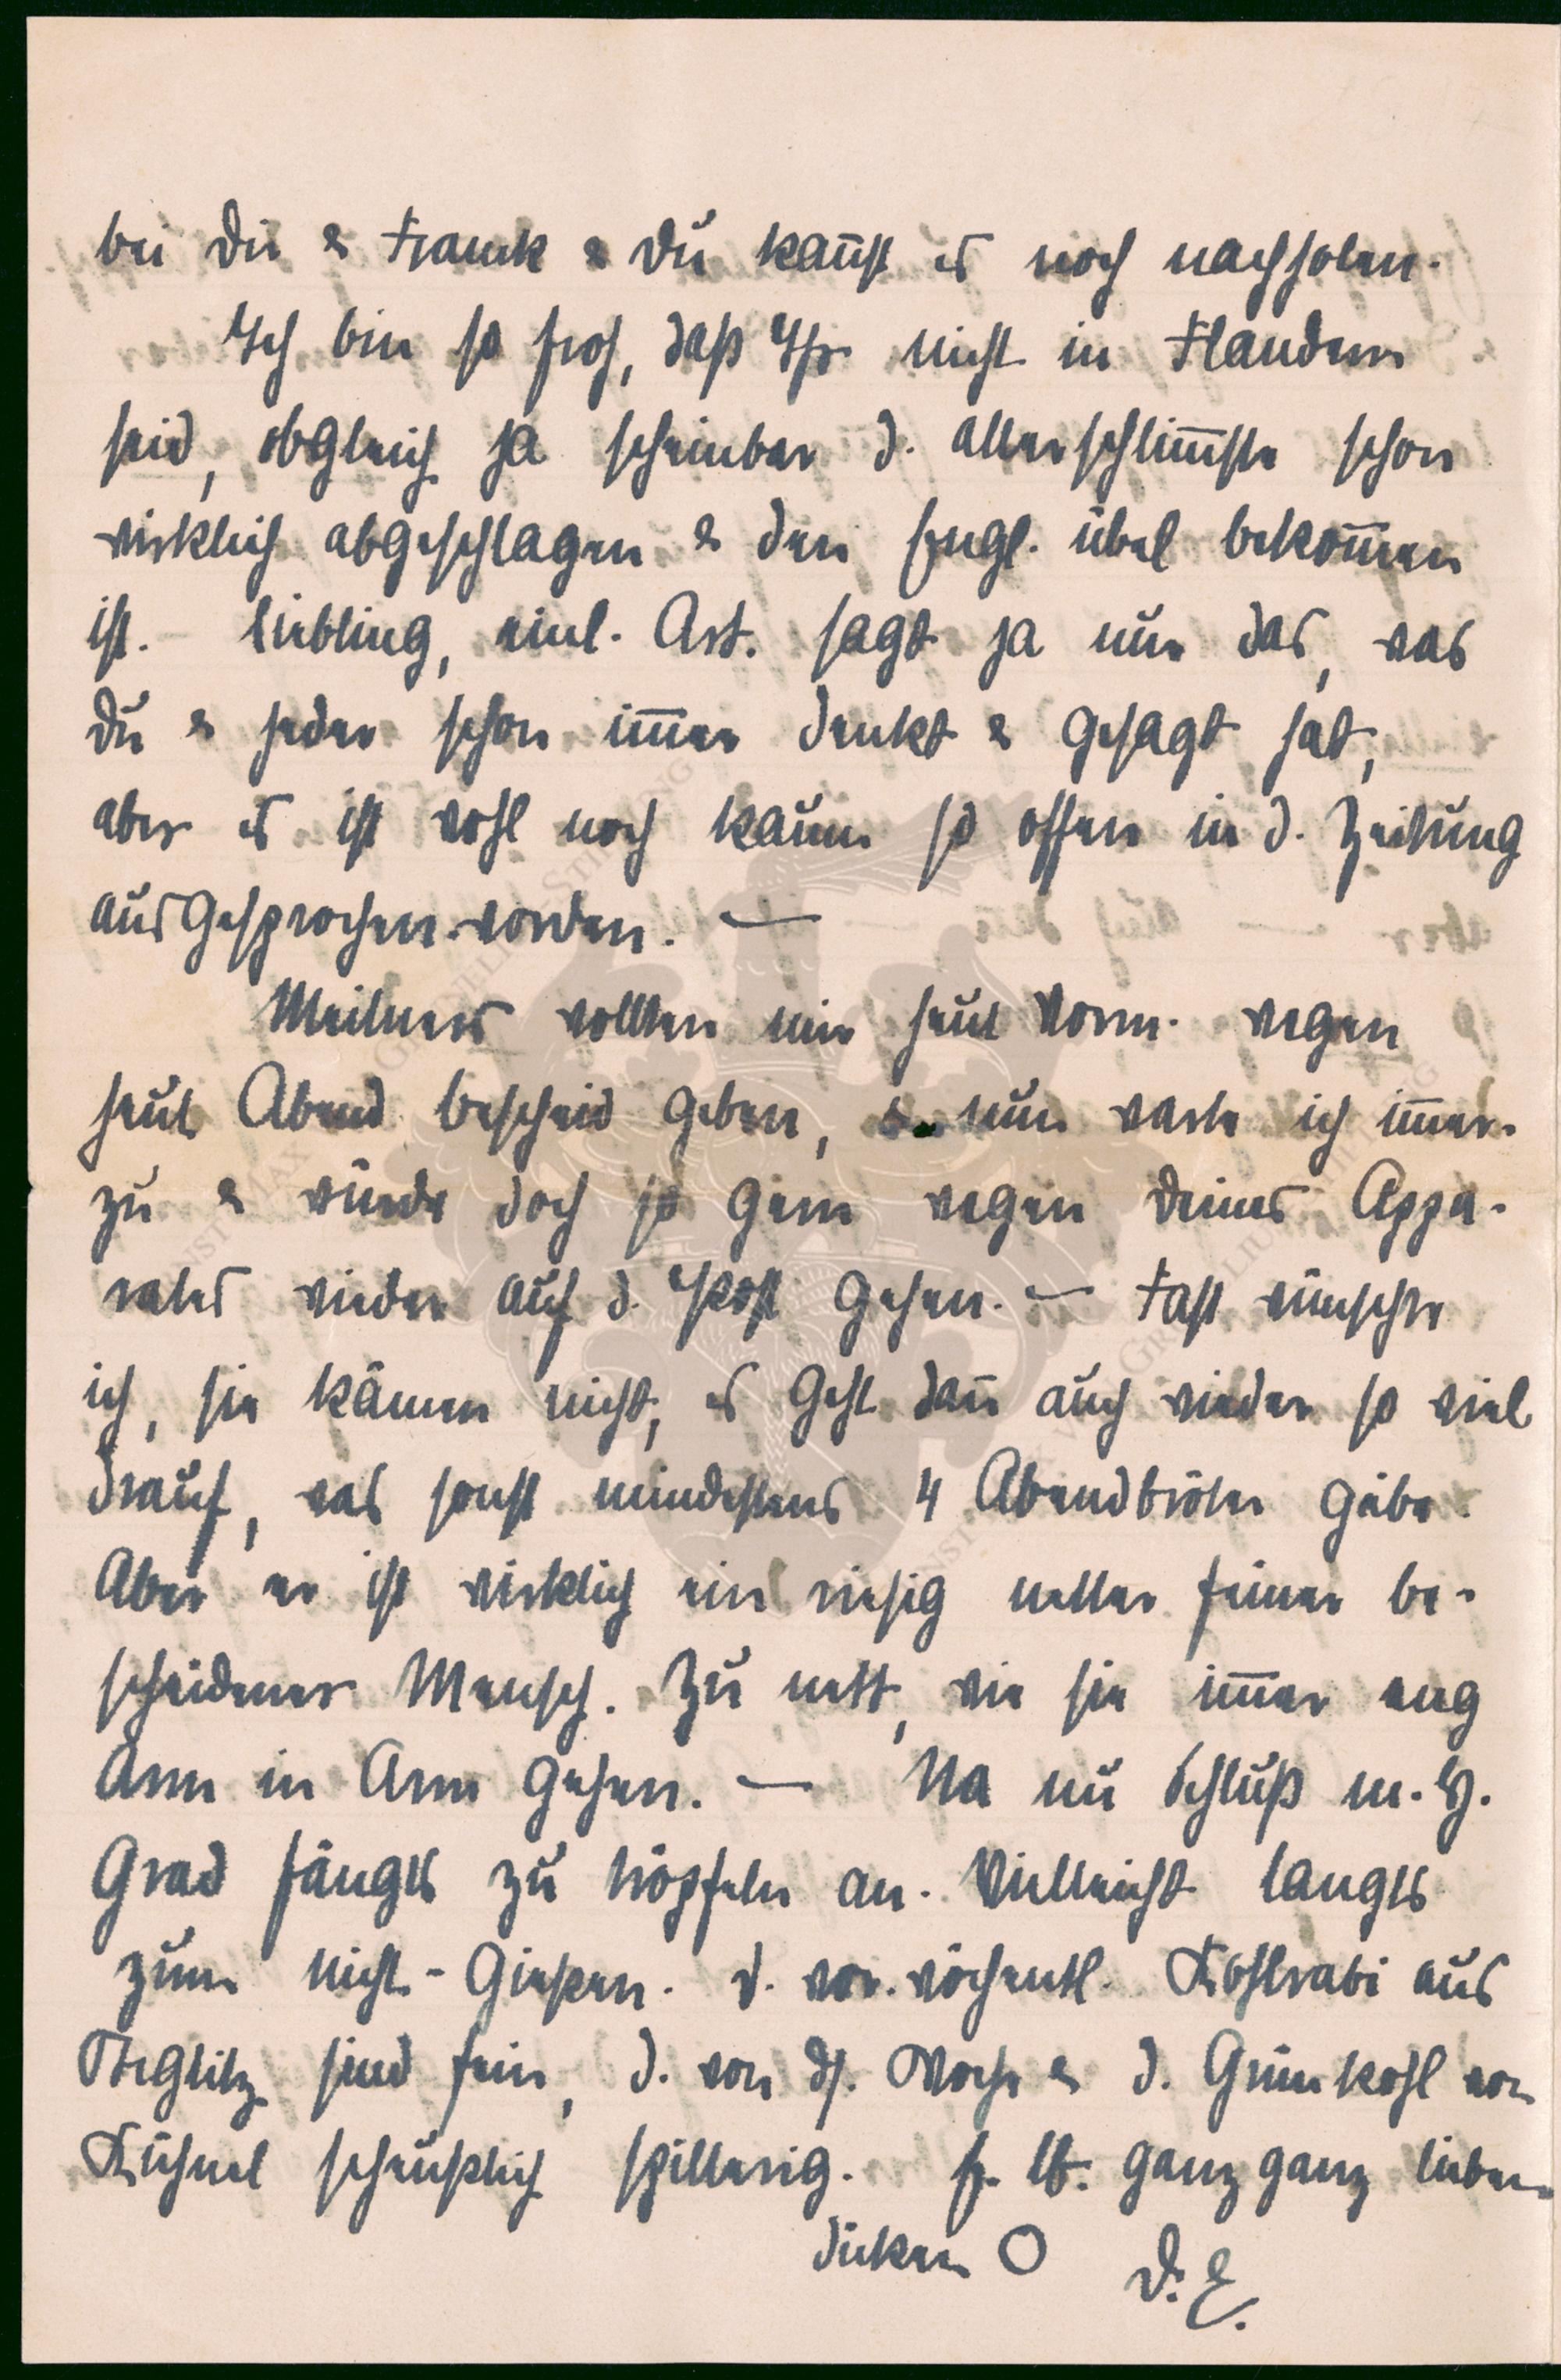 bei Dir & Franck & Du kan̄st es noch nachholen.
Ich bin so froh, daß Ihr nicht in Flandern
seid, obgleich ja scheinbar d. allerschlim̄ste schon
wirklich abgeschlagen & den Engl. übel bekom̄en
ist. – Liebling, einl. Art. sagt ja nur das, was
Du & jeder schon im̄er denkt & gesagt hat,
aber es ist wohl noch kaum so offen in d. Zeitung
ausgesprochen worden. —
Meiners wollten mir heut Vorm. wegen
heut Abend bescheid geben, & nun warte ich im̄er-
zu & würde doch so gern wegen Deines Appa-
rates wieder auf d. Post gehen. — Fast wünschte
ich, sie kämen nicht, es geht dan̄ auch wieder so viel
drauf, was sonst mindestens 4 Abendbröte gäbe.
Aber er ist wirklich ein riesig netter feiner be-
scheidener Mensch. Zu nett, wie sie im̄er eng
Arm in Arm gehen. — Na nu Schluß m. H.
Grad fängts zu tröpfeln an. Vielleicht langts
zum nicht-Gießen. D. vor. wöchentl. Kohlrabi aus
Steglitz sind fein, d. von ds. Woche & d. Grünkohl von
Kühnel scheußlich spillerig. E. lb. ganz ganz lieben
dicken O D. E.